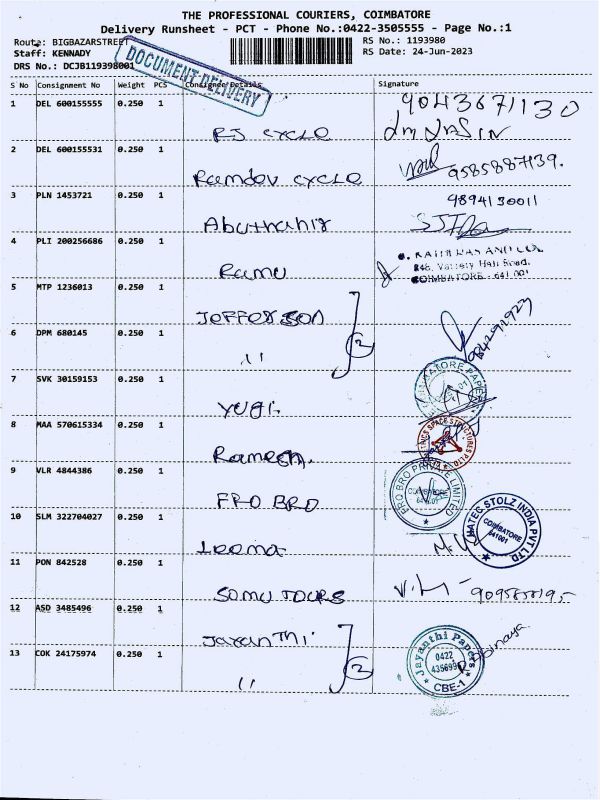 THE PROFESSIONAL COURIERS, COIMBATORE
Delivery Runsheet - PCT - Phone No.:0422-3505555 - Page No.:1
Route: BIGBAZARSTREET
RS No.: 1193980
Staff: KENNADY
RS Date: 24-Jun-2023
DRS No.: DCJB119398001
DOCUMENT DELIVERY
S No Consignment No Weight PCS Consignee Details Signature
1 DEL 600155555 0.250 1 RJ CYCLE 9043671130
2 DEL 600155531 0.250 1 Ramdev CYCLE 9585887139.
3 PLN 1453721 0.250 1 Abuthahir 9894130011
4 PLI 200256686 0.250 1 Ramu
COIMBATORE - 641 001
5 MTP 1236013 0.250 1 JEFFERSON
6 DPM 680145 0.250 1 " 2
7 SVK 30159153 0.250 1 YUGI. COIMBATORE PAPER
8 MAA 570615334 0.250 1 Ramesh. SPACE STRUCTURES
9 VLR 4844386 0.250 1 FRO BRO FRO BRO PRIVATE LIMITED COIMBATORE
10 SLM 322704027 0.250 1 Leema HATEC STOLZ INDIA PVT LTD COIMBATORE 641001
11 PON 842528 0.250 1 SOMU TOURS
12 ASD 3485496 0.250 1 Jayanthi
13 COK 24175974 0.250 1 " 2 Jayanthi Papers 0422 CBE-1 Abinaya